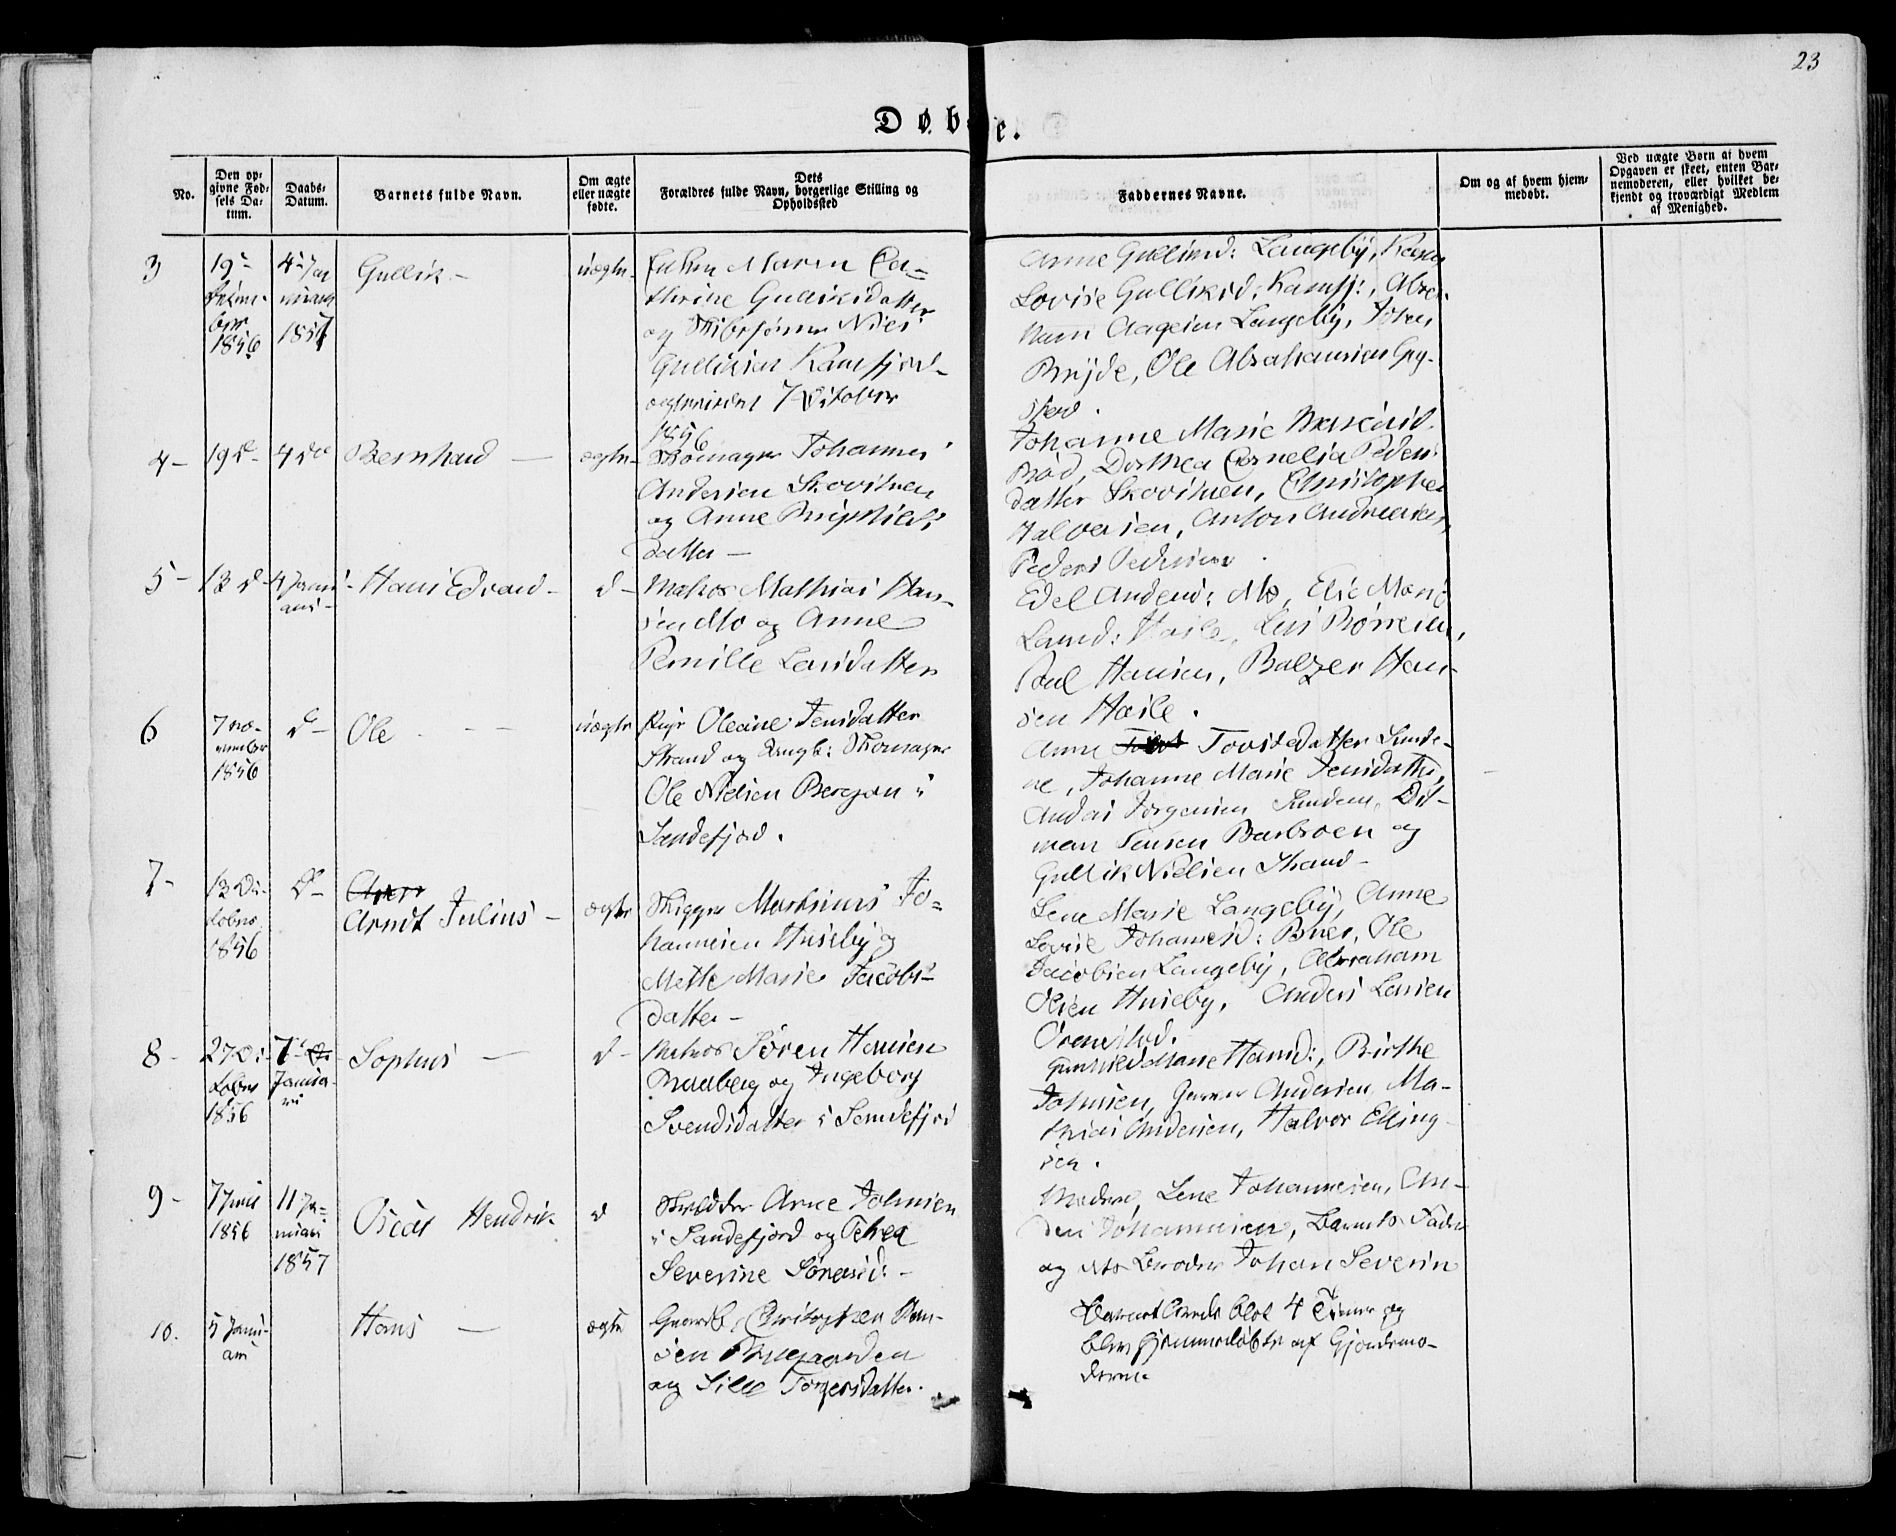 23
Døbte.
No.
Den op-
givne Fød-
sels Da-
tum.
Daabs-
Datum.
Barnets fulde Navn.
Om ægte
eller uægte
fødte.
Dets
Forældres fulde Navn, borgerlige Stilling og
Opholdssted
Faddernes Navne.
Om og af hvem hjem-
medøbt.
Ved uægte Børn af hvem
Opgaven er skeet, enten Bar-
nemoderen, eller hvilket be-
kjendt og troværdigt Medlem
af Menighed.
3
19
1856
4
1857
Gullik -
uægte
Maren Ca=
thrine Gulliksdatter
og Niels
Gulliksen Kamfjord
7 October
1856
Anne Gulliksd: Langeby, Karen
Lovise Gulliksd: Kamfj:, Abra-
ham Aagesen Langeby, Johan
Bryde, Ole Abrahamsen Gog-
sjød.
4 -
19 d -
4 de
Bernhard -
ægte
Skomager Johannes
Andersen Skovstuen
og Anne
datter -
Johanne Marie
Dorthea Cornelia Peders
datter Skovstuen, Christopher
Halvorsen, Anton Andreasen,
Peders Pedersen.
5 -
13 d -
4 Janu-
ari -
Hans Edvard -
d -
Matros Mathias Han-
sen Mo og Anne
Pernille Larsdatter
Edel Andersd: Mo, Else Marie
Larsd: Hasle,
Poul Hansen, Balzer Han-
sen Hasle.
6
7 No-
vember
1856
d -
Ole - -
uægte
Pige Oleane Jensdatter
Strand og Ungk: Skomager
Ole Nielsen Bergan i
Sandefjord.
Anne Tovsdatter Sunde-
ne, Johanne Marie Jensdatter,
Anders Jørgensen Sunden, Dit-
man Jensen Barbroen og
Gullik Nielsen Strand -
7 -
13 Oc-
tober
1856
d -
Arndt Julius -
ægte
Skipper Martinius Jo=
hannesen Huseby og
Mette Marie Jacobs-
datter -
Lene Marie Langeby, Anne
Lovise Johannesd: Buer, Ole
Jacobsen Langeby, Abraham
Olsen Huseby, Anders Larsen
8 -
27 Oc-
tober
1856
7 -
Janua-
ri
Sophus -
d -
Matros Søren Hansen
og Ingeborg
Svendsdatter i Sandefjord
Marie Hansd:, Birthe
Johnsen, Andersen, Ma-
thias Andersen, Halvor Elling-
sen.
9 -
1856
11 Ja-
nuari
1857
Oscar Hendrik
d
Skrædder Arne Johnsen
i Sandefjord og Petrea
Severine Sørensd: -
Moderen, Lene Johannesen, An-
ders Johannesen, Barnets Fader
og dets Broder Johan Severin
10.
5 Janu-
ari
Hans -
ægte
Gaardb. Christopher Han-
sen
og Sille Torgersdatter.
Barnet levede blot 4 Timer og
blev hjemmedøbt af Gjordemo-
deren.